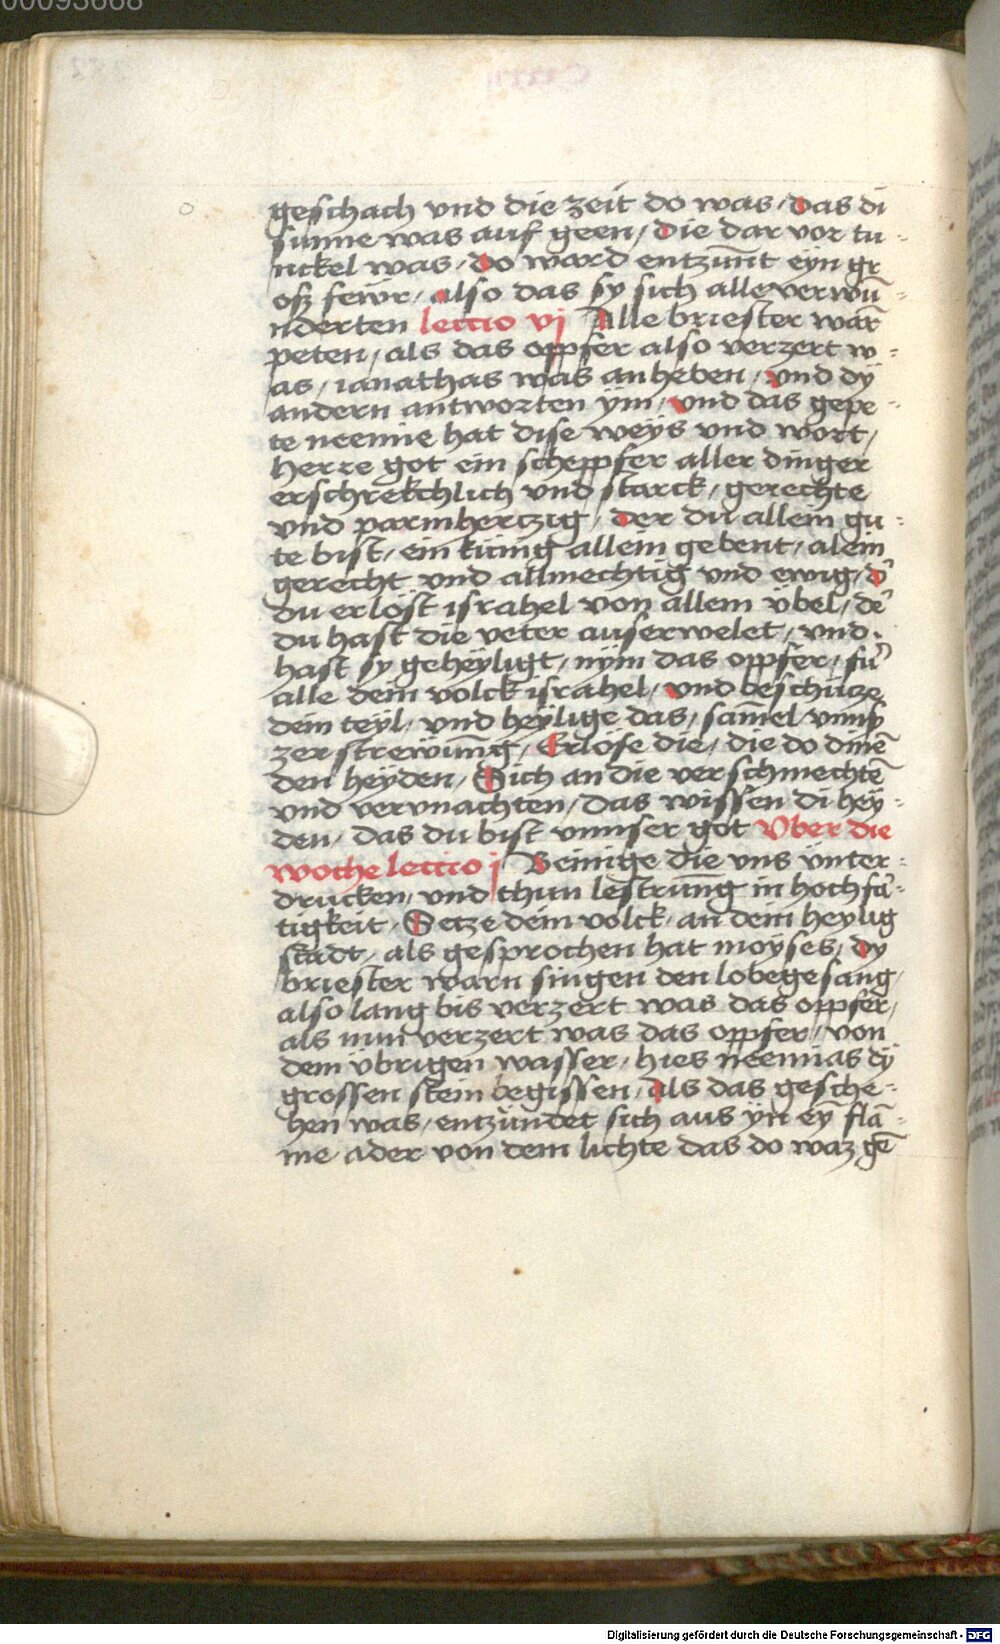 00093668
geschach vnd die zeit do was / das di
sunne was auf geen / die dar vor tu-
nckel was / do ward entzun̄t eyn gr
osz fewr / also das sy sich alle verwū-
nderten lectio vj Alle briester warn̄
peten / als das oppfer also verzert w-
as / ianathas was anheben / vnd dÿ
andern antworten ÿm / vnd das gepe-
te neemie hat dise weÿs vnd wort /
Herre got ein scheppfer aller dinger
erschrekchlich vnd starck / gerechte
vnd parmhertzig / der du allein gu-
te bist / ein küing allein gebent / alein
gerecht vnd allmechtig vnd ewig / d'
du erlöst israhel von allem übel / de'
du hast die veter auserwelet / vnd
hast sy geheÿligt / nÿm das oppfer / fu'
alle dem volck israhel / vnd beschücze
dem teÿl / vnd heÿlige das / sam̄el vnns'
zerstrewūng / Erlöse die / die do dinē
den heÿden / Sich an die verschmechtē
vnd vervnachten / das wissen di heÿ-
den / das du bist vnnser got Vber die
woche lectio j Peinige die vns vnter-
drucken / vnd thun lestrūng in hochfa'-
tigkeit / Setze dein volck / an dein heylig
stadt / als gesprochen hat moÿses / dy
briester warn singen den lobegesang /
also lang bis verzert was das oppfer /
als nun verzert was das oppfer / von
dem übrigen wasser / hies neemias dÿ
grossen stein begissen / als das gesche-
hen was / entzündet sich aus ÿn eȳ flā-
me / ader von dem lichte das do waz gē
Digitalisierung gefördert durch die Deutsche Forschungsgemeinschaft - DFG